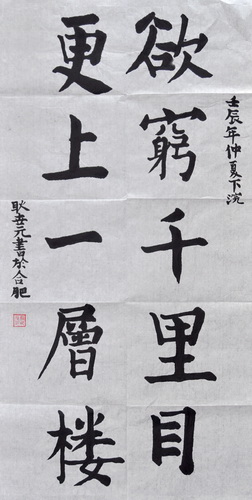 壬辰年仲夏下浣
欲窮千里目
更上一層楼
耿去元書於合肥